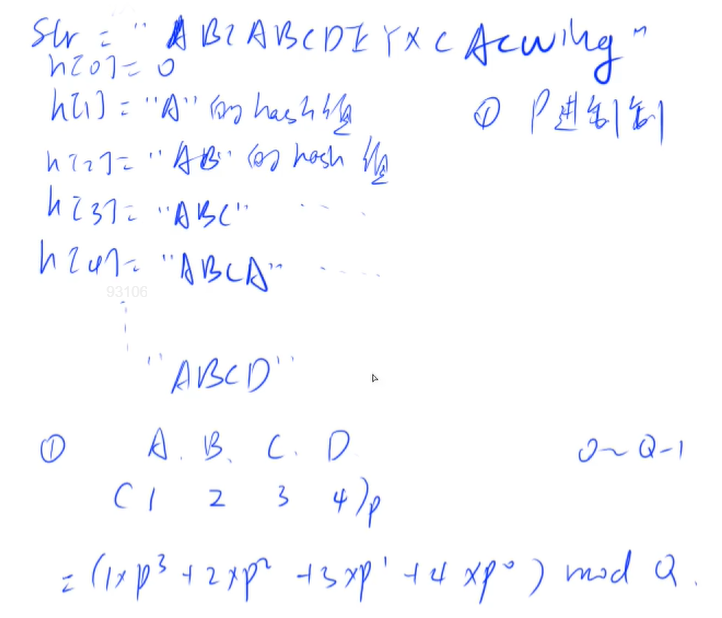 str = "ABCABCDEYXCAcwing"
h[0] = 0
h[1] = "A" 的hash值
① P进制制
h[2] = "AB" 的hash值
h[3] = "ABC" ....
h[4] = "ABCA" ....
93106
"ABCD"
① A. B. C. D
0~Q-1
(1 2 3 4)p
= (1×p³+2×p²+3×p¹+4×p⁰) mod Q.